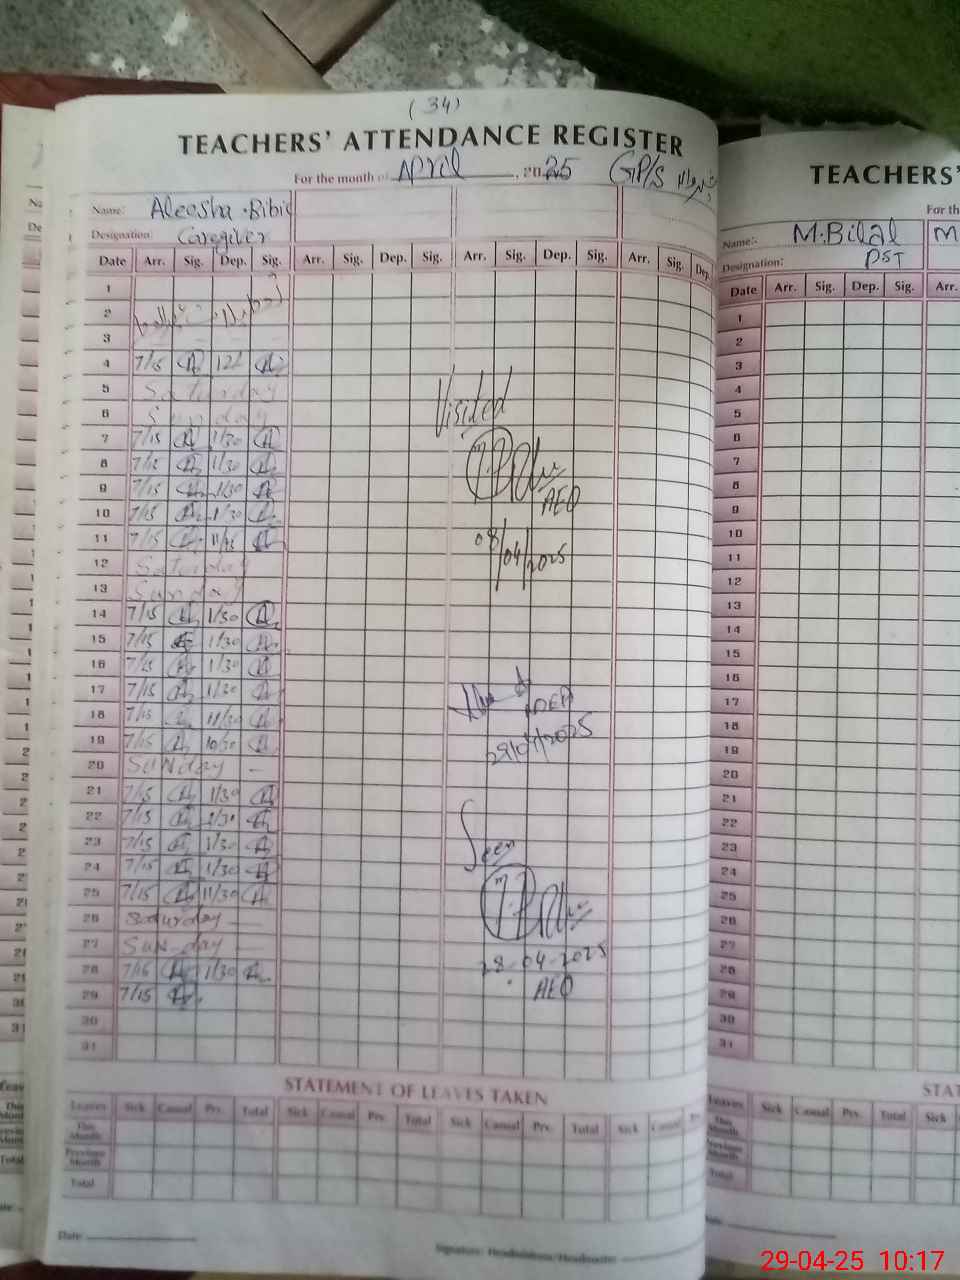 (34)
TEACHERS' ATTENDANCE REGISTER
For the month of April, 2025 GP/S
Name: Aleesha Bibi
Designation: Caregiver
Date Arr. Sig. Dep. Sig. Arr. Sig. Dep. Sig. Arr. Sig. Dep. Sig. Arr. Sig. Dep.
1
2
3
4 7/15
5 Saturday
6 Sunday
7 7/15 1/30
8 7/15 1/30
9 7/15 1/30
10 7/15 1/30
11 7/15
12 Saturday
13 Sunday
14 7/15 1/30
15 7/15 1/30
16 7/15 1/30
17 7/15 1/30
18 7/15 11/30
19 7/15 10/30
20 Sunday
21 7/15 1/30
22 7/15 1/30
23 7/15 1/30
24 7/15 1/30
25 7/15 11/30
26 Saturday
27 Sunday
28 7/15 1/30
29 7/15
30
31
Visited
AEO
08/04/2025
28/04/2025
Seen
28-04-2025
AEO
STATEMENT OF LEAVES TAKEN
Leaves Sick Casual Prv. Total Sick Casual Prv. Total Sick Casual Prv. Total Sick Casual Prv.
This Month
Previous Month
Total
Date:
Signature: Headmistress/Headmaster
TEACHERS'
For th
Name: M. Bilal M
Designation: PST
Date Arr. Sig. Dep. Sig. Arr.
1
2
3
4
5
6
7
8
9
10
11
12
13
14
15
16
17
18
19
20
21
22
23
24
25
26
27
28
29
30
31
STAT
Leaves Sick Casual Prv. Total Sick
This Month
Previous Month
Total
29-04-25 10:17